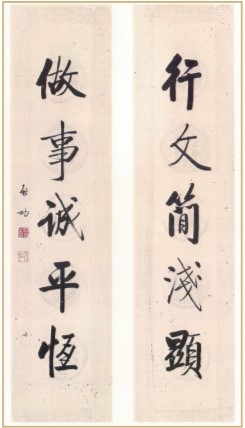 行文简浅顯
做事诚平恒
启功